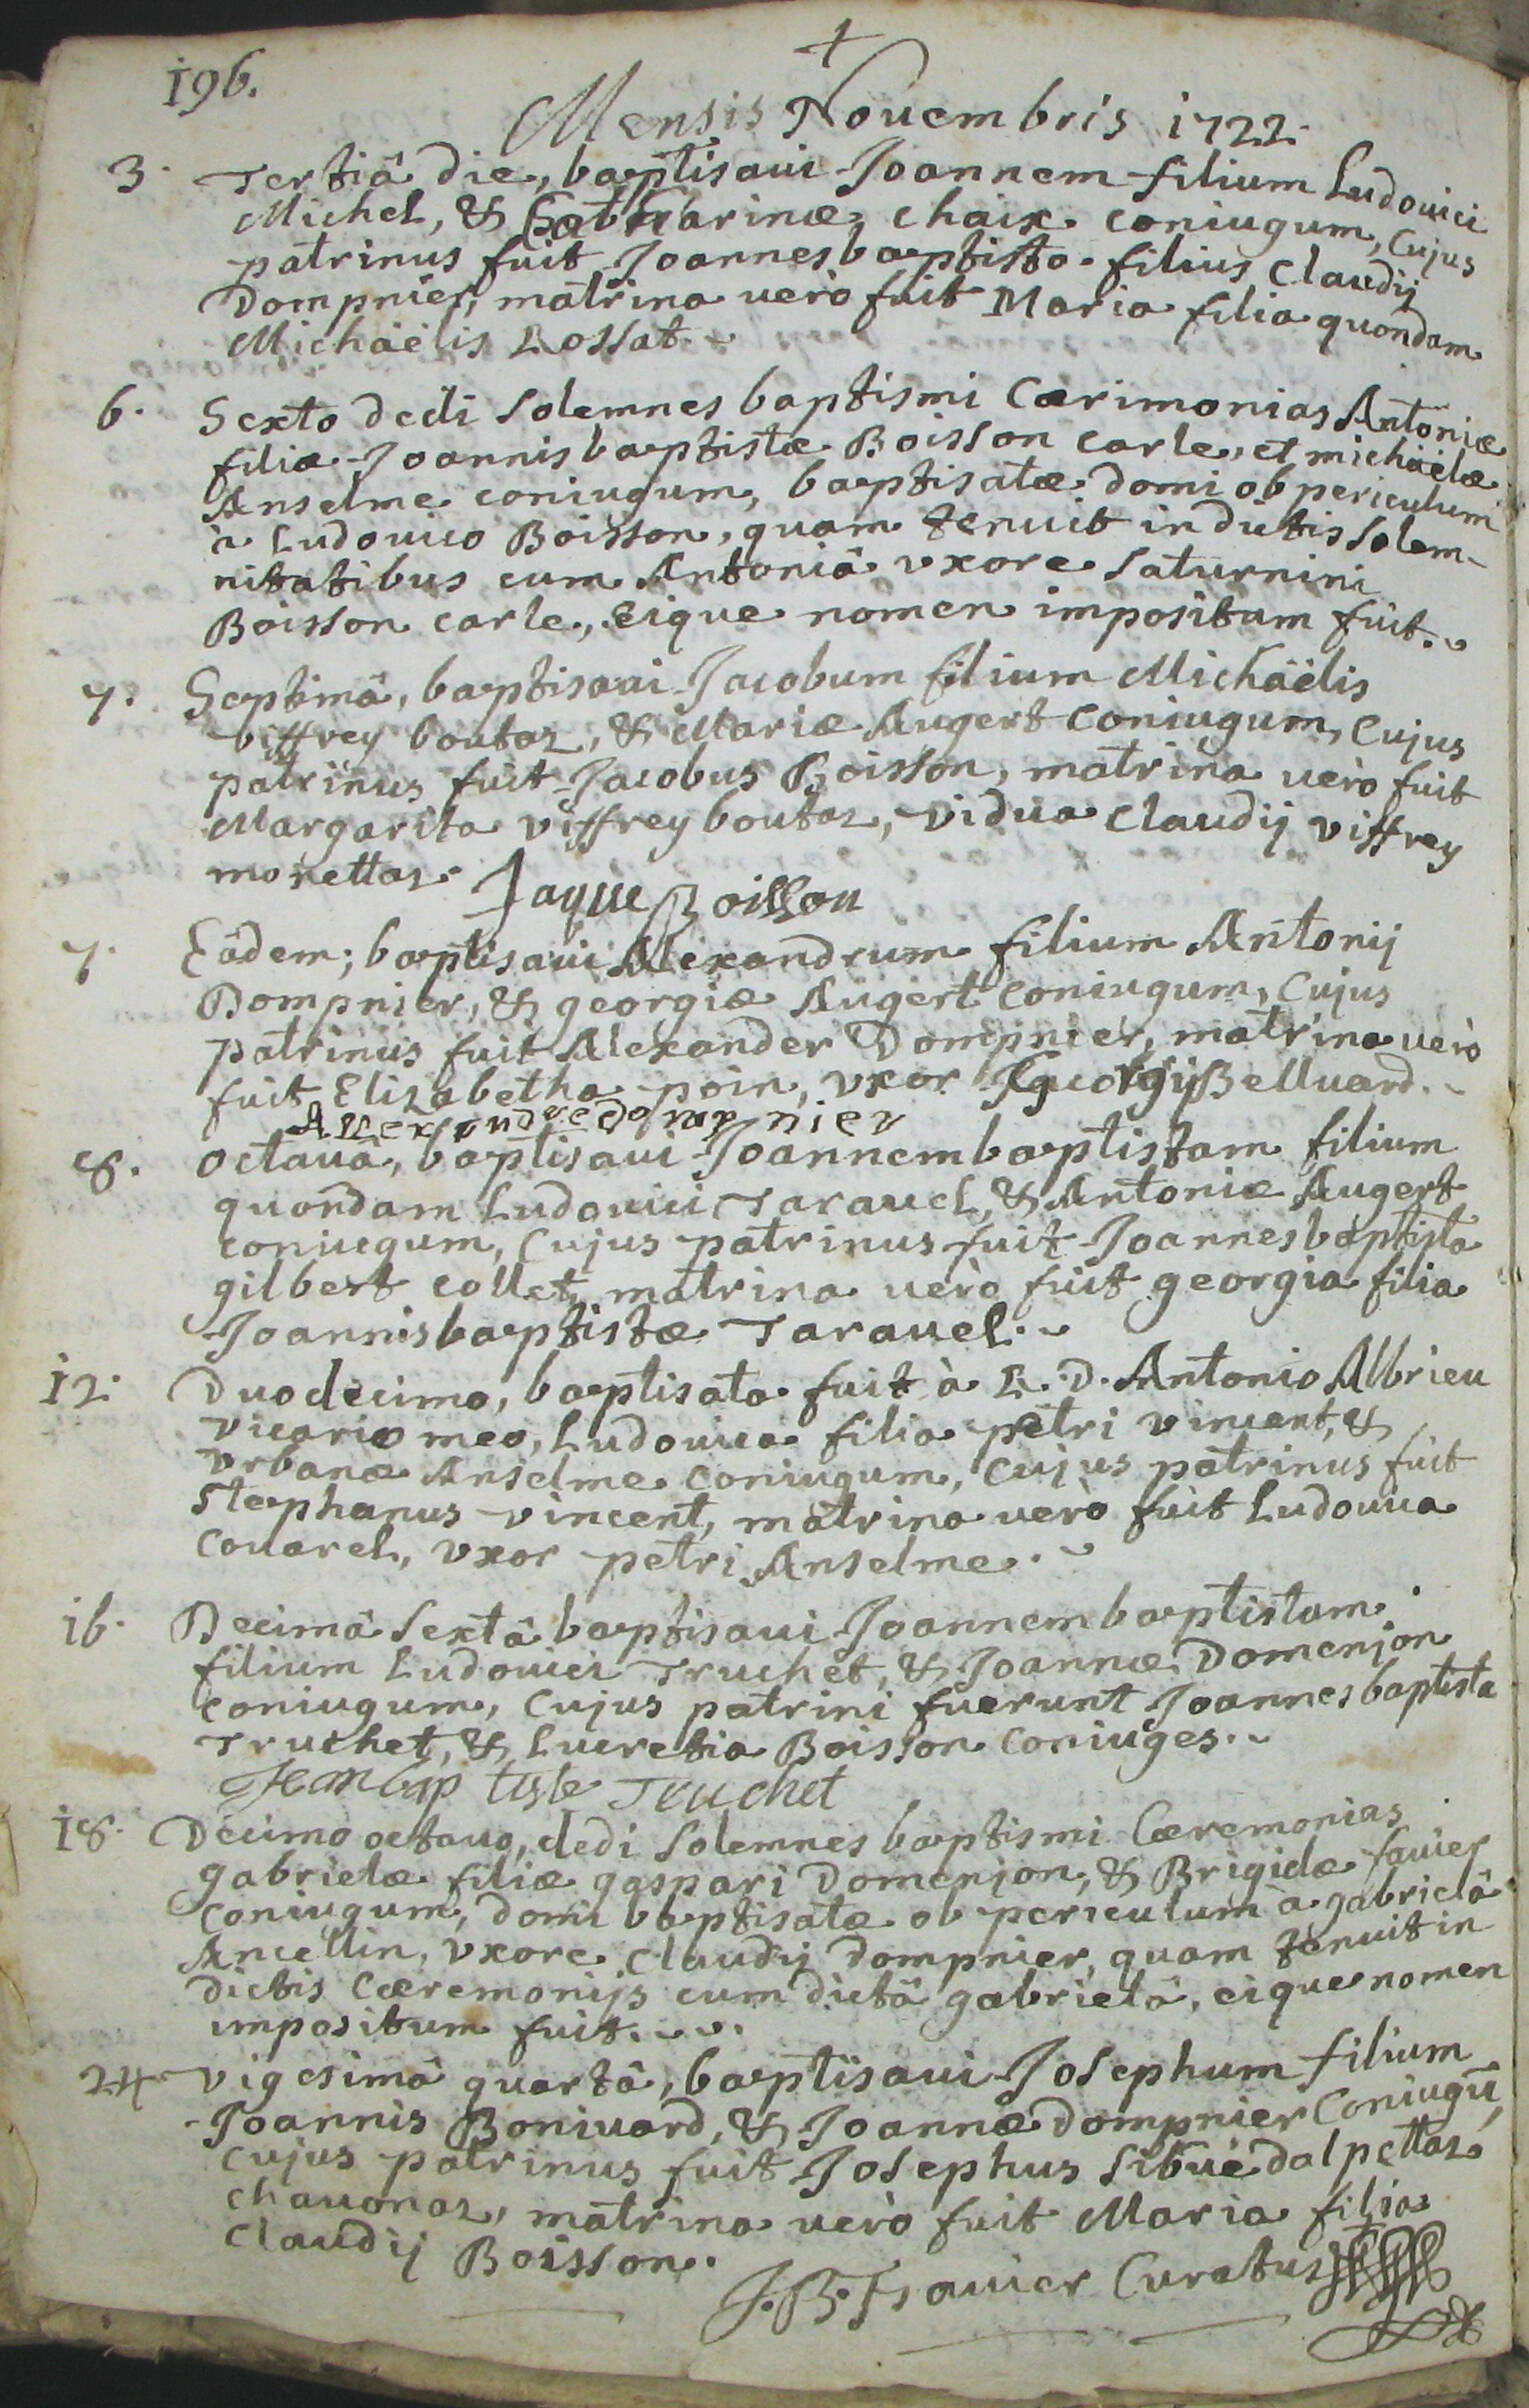 196.
+
Mensis Nouembris 1722.
3. Tertiâ die, baptisaui Joannem filium Ludouici
Michel, & Catharinæ chaix coniugum, Cujus
patrinus fuit Joannesbaptista filius Claudij
Dompnier, matrina uerò fuit Maria filia quondam
Michäelis Rossat.
6. Sexto dedi solemnes baptismi Cærimonias Antoniæ
filiæ Joannisbaptistæ Boisson carle, et michäelæ
Anselme coniugum, baptisatæ domi ob periculum
à Ludouico Boisson, quam tenuit in dictis solem-
nitatibus cum Antoniâ vxore saturnini
Boisson carle, eique nomen impositum fuit.
7. Septimâ, baptisaui Jacobum filium Michäelis
viffrey boutaz, & Mariæ Augert coniugum, Cujus
patrinus fuit Jacobus Boisson, matrina uerò fuit
Margarita viffrey boutaz, vidua Claudij viffrey
monettaz. Jaque Boisson
7. Eâdem; baptisaui Alexandrum filium Antonij
Dompnier, & georgiæ Augert coniugum, Cujus
patrinus fuit Alexander Dompnier, matrina uerò
fuit Elizabetha poin, vxor georgij Belluard.
Allexandre dompnier
8. octauâ, baptisaui Joannembaptistam filium
quondam Ludouici Tarauel, & Antoniæ Augert
coniugum, Cujus patrinus fuit Joannesbaptista
gilbert collet, matrina uerò fuit georgia filia
Joannisbaptistæ Tarauel.
12. Duodecima, baptisata fuit à R. D. Antonio Albrieu
vicario meo, Ludouica filia petri vincent, &
vrbanæ Anselme coniugum, Cujus patrinus fuit
stephanus vincent, matrina uerò fuit Ludouica
Couarel, vxor petri Anselme.
16. Decimâ sextâ baptisaui Joannembaptistam
filium Ludouici Truchet, & Joannæ Domenjon
coniugum, Cujus patrini fuerunt Joannesbaptista
Truchet, & Lucretia Boisson coniuges.
Jean bap tiste Truchet
18. Decimo octauo, dedi solemnes baptismi Cæremonias
gabrielæ filiæ gaspari Domenjon, & Brigidæ fauier
Coniugum, domi baptisatæ ob periculum à gabrielâ
Ancellin, vxore Claudij Dompnier, quam tenuit in
dictis Cæremonijs cum dictâ gabrielâ, eique nomen
impositum fuit.
24 vigesimâ quartâ, baptisaui Josephum filium
Joannis Boniuard, & Joannæ Dompnier Coniugū,
Cujus patrinus fuit Josephus sibuë dalpettaz
chauonaz, matrina uerò fuit Maria filia
Claudij Boisson.
J. B. Curatus